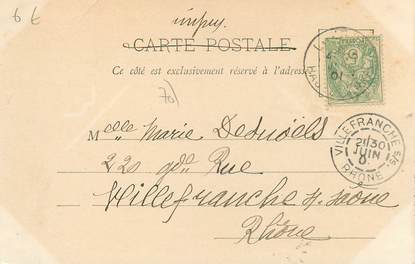 impr.
CARTE POSTALE
Ce côté est exclusivement réservé à l'adresse
Melle Marie Desnoëls
220 gde Rue
Villefranche s/ Saône
Rhône
VILLEFRANCHE S/S
21 30
JUIN
RHONE